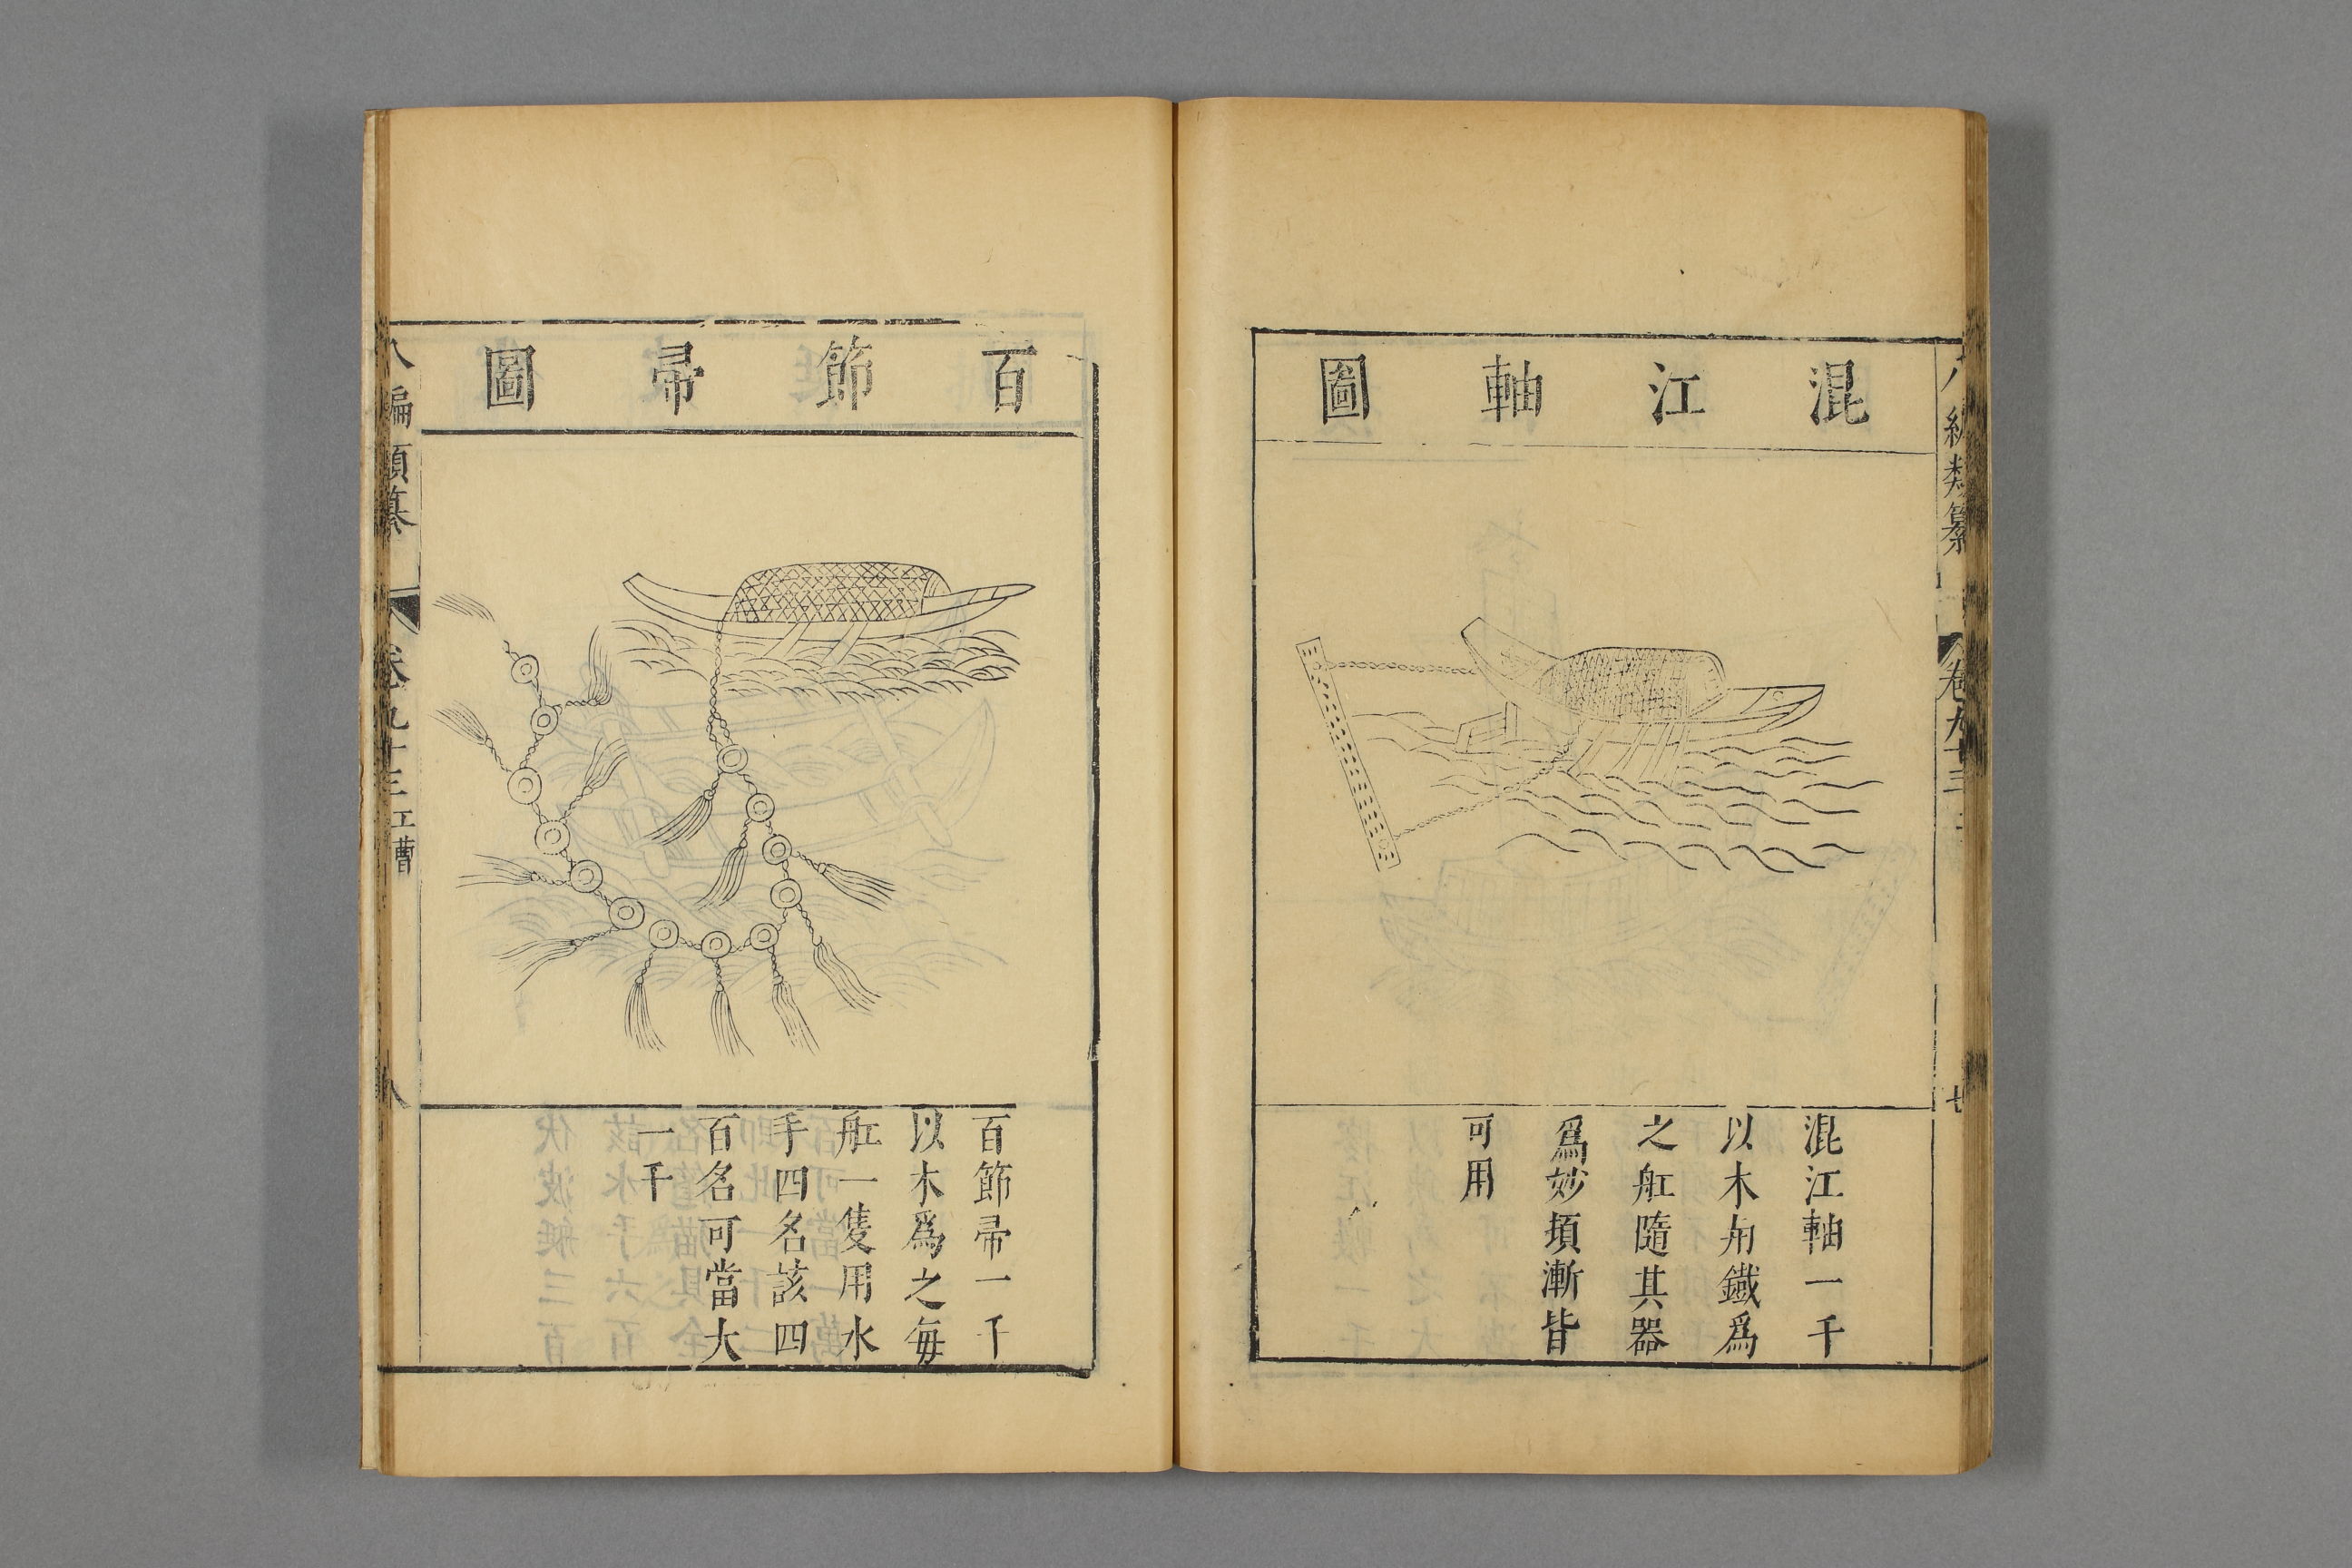 混江軸圖
混江軸一千
以木用鐵爲
之舡隨其器
爲妙埧漸皆
可用
八編類纂
卷九十三
七
百節帚圖
百節帚一千
以木爲之每
舡一隻用水
手四名該四
百名可當大
一千
八編類纂
卷九十三 工曹
八